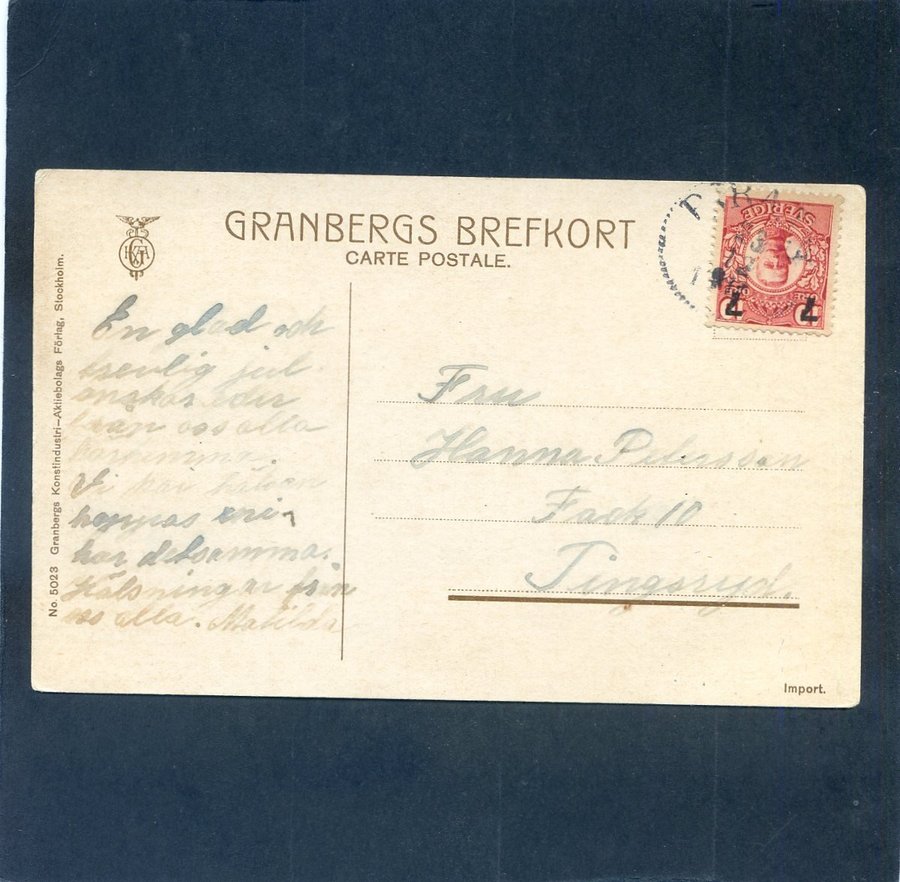 GRANBERGS BREFKORT
CARTE POSTALE.
No. 5023 Granbergs Konstindustri-Aktiebolags Förlag, Stockholm.
SVERIGE
7 7
En glad och
trevlig jul
önskas eder
från oss alla
härsamma.
Vi har hälsan
hoppas eni
har detsamma.
Hälsningar från
oss alla. Matilda
Fru
Hanna Petersson
Fack 10
Tingsryd.
Import.